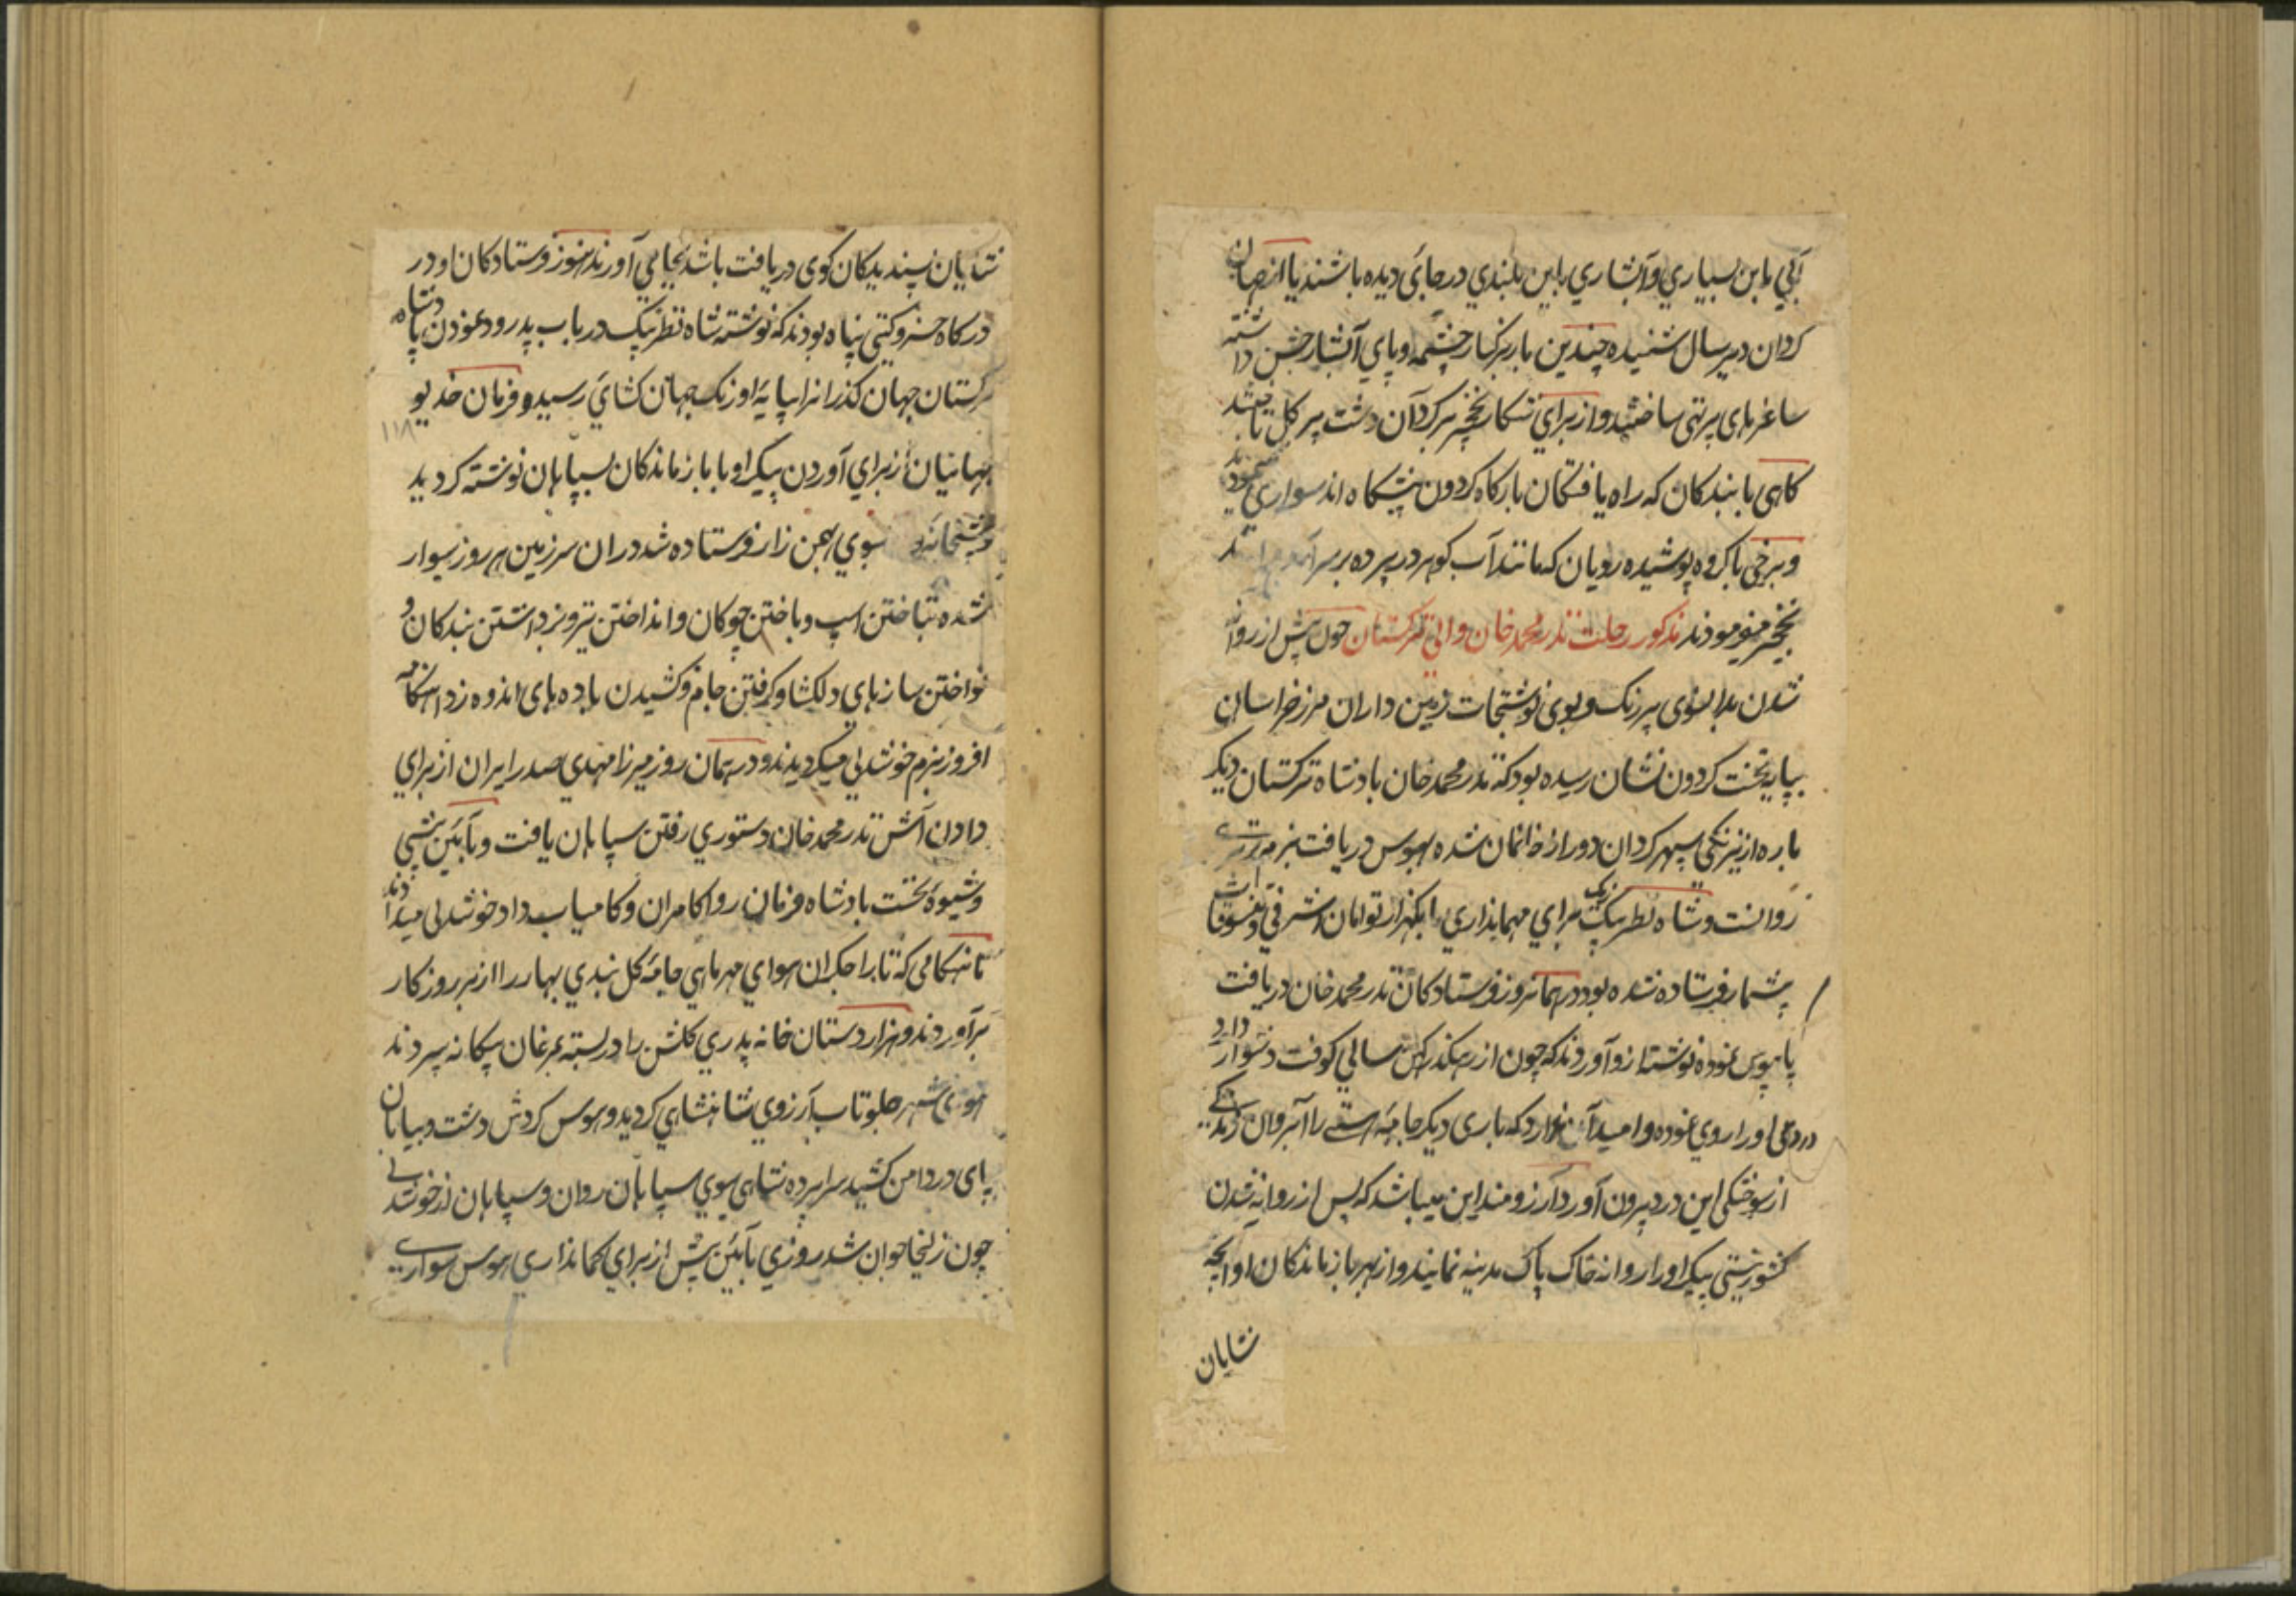 آبی باین بسیاری و آبشاری باین بلندی در جائی دیده باشند یا از جهان
کردان دیر سال شنیده چندین بار بر کنار چشمه و پای آبشار جشن داشته
ساغرهای پر تهی ساختند و از برای شکار نخچیر بر کرد آن دشت پر کل
کاهی با بندکان که راه یافتکان بارکاه کردون پیشکاه اند سواری
و برخی با کروه پوشیده رویان که مانند آب کوهر در پرده بر سر
نخچیر میفرمودند مذکور رحلت ندر محمد خان والی ترکستان چون پیش از روانه
شدن بدانسوی پر رنک و بوی نوشتجات زمین داران مرز خراسان
بپایه تخت کردون نشان رسیده بود که ندر محمد خان بادشاه ترکستان دیکر
باره از نیرنکی سپهر کردان دور از خانمان شده بهوس دریافت بزم
روانست و شاه نظر بیک برای مهمانداری با یکهزار تومان اشرفی و
پیشمار فرستاده شده بود در همانروز فرستادکان ندر محمد خان دریافت
پابوس نموده نوشته ازو آوردند که چون از رهکذر کهن سالی کوفت دشوار دارد
دردی او را روی نموده و امید آن ندارد که باری دیکر جامه هستی را
از سوختکی این درد بیرون آورد آرزومند این میباشد که پس از روانه شدن
کشور نیستی پیکر او را روانه خاک پاک مدینه نمایند و از بهر بازماندکان او آنچه
شایان
شایان پسندیدکان کوی دریافت باشد بجای می آورند هنوز فرستادکان او در
درکاه خسرو کیتی پناه بودند که نوشته شاه نظر بیک در باب پدرود نمودن پادشاه
ترکستان جهان کذرانرا بپایه اورنک جهان کشای رسید و فرمان خدیو
۱۱۸
جهانیان از برای آوردن پیکر او با بازماندکان بسپاهان نوشته کردید
بسوی چمن زار فرستاده شد در ان سرزمین هر روز سوار
شده بتاختن اسپ و باختن چوکان و انداختن تیر و نزد داشتن بندکان و
نواختن سازهای دلکشا و کرفتن جام و کشیدن باده های اندوه زدا هنکامه
افروز بزم خوشدلی میکردیدند و در همان روز میرزا مهدی صدر ایران از برای
دادن آش ندر محمد خان دستوری رفتن سپاهان یافت و بآئین پیشین
و شیوه نخست بادشاه فرمان روا کامران و کامیاب داد خوشدلی میدادند
تا هنکامی که تاراجکران هوای مهرماهی جامه کل بندی بهار را از بر روزکار
برآوردند و هزار دستان خانه پدری کلشن را در بسته بمرغان بیکانه سپردند
هوای شهر جلوتاب آرزوی شاهنشاهی کردید و هوس کردش دشت و بیابان
پای در دامن کشید سراپرده شاهی بسوی سپاهان روان و سپاهان از خوشدلی
چون زلیخا جوان شد روزی بآئین پیش از برای کمانداری هوس سواری